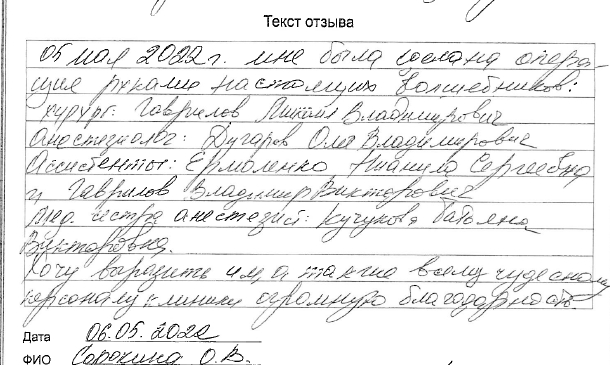 Текст отзыва
05 мая 2022г. мне была сделана опера-
ция руками настоящих волшебников:
хирург: Гаврилов Михаил Владимирович
анестезиолог: Дугаров Олег Владимирович
Ассистенты: Ермоленко Сергеевна
и Гаврилов Владимир Викторович
Мед. сестра анестезист: Кучукова Татьяна
Викторовна.
Хочу выразить им, а также всему чудесному
персоналу клиники огромную благодарность.
Дата 06.05.2022
ФИО Сорокина О.В.